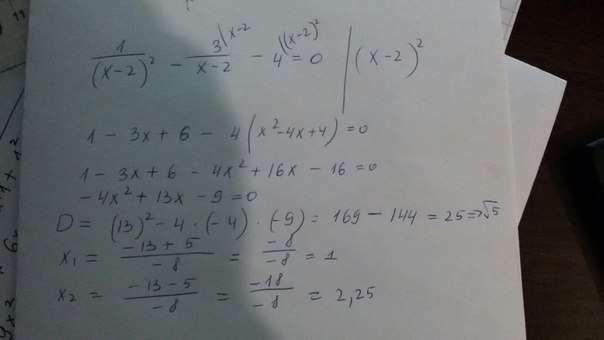 1/(x-2)² - 3^(x-2/(x-2) - 4^((x-2)² = 0 | (x-2)²
1 - 3x + 6 - 4(x²-4x+4) = 0
1 - 3x + 6 - 4x² + 16x - 16 = 0
-4x² + 13x - 9 = 0
D = (13)² - 4 · (-4) · (-9) = 169 - 144 = 25 => √5
x₁ = (-13+5)/(-8) = (-8)/(-8) = 1
x₂ = (-13-5)/(-8) = (-18)/(-8) = 2,25